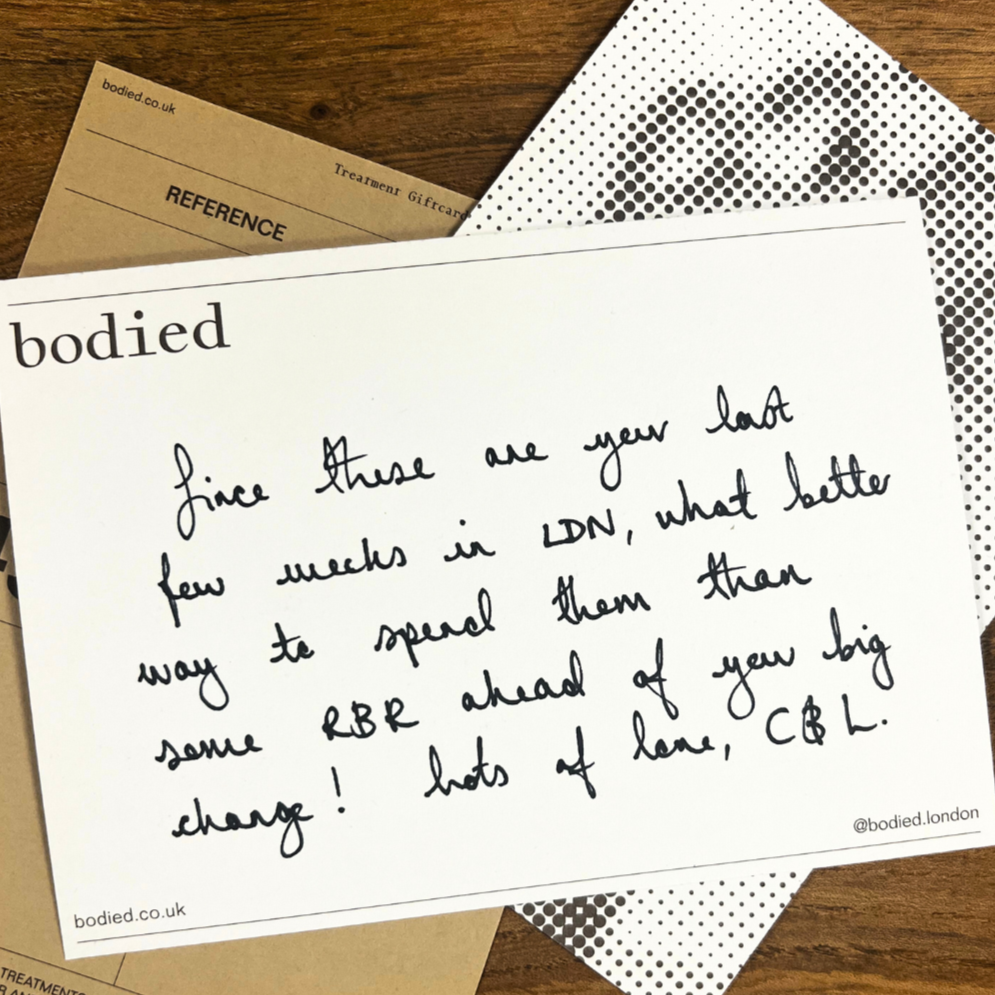 bodied.co.uk
Treatment Giftcard
REFERENCE
bodied
Since these are your last
few weeks in LDN, what better
way to spend them than
some RBR ahead of your big
change! Lots of love, C & L.
@bodied.london
bodied.co.uk
TREATMENTS